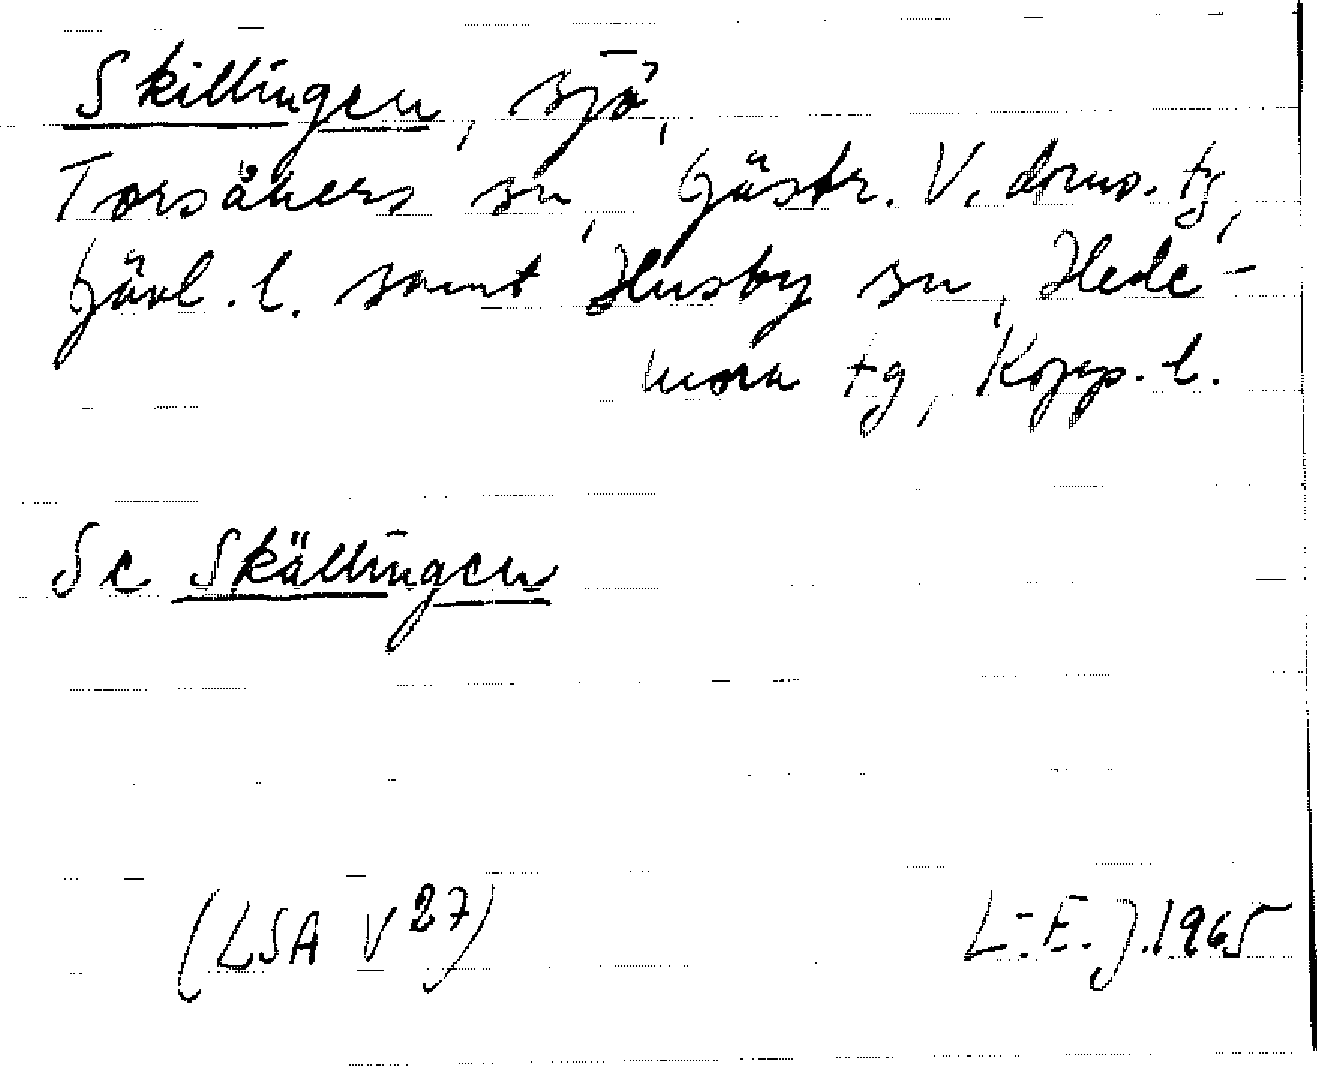 Skillingen, sjö,
Torsåkers sn, Gästr. V. doms. tg,
Gävl. l. samt Husby sn, Hede-
mora tg, Kopp. l.
Se Skällingen
(LSA V 27) L-E. J. 1965